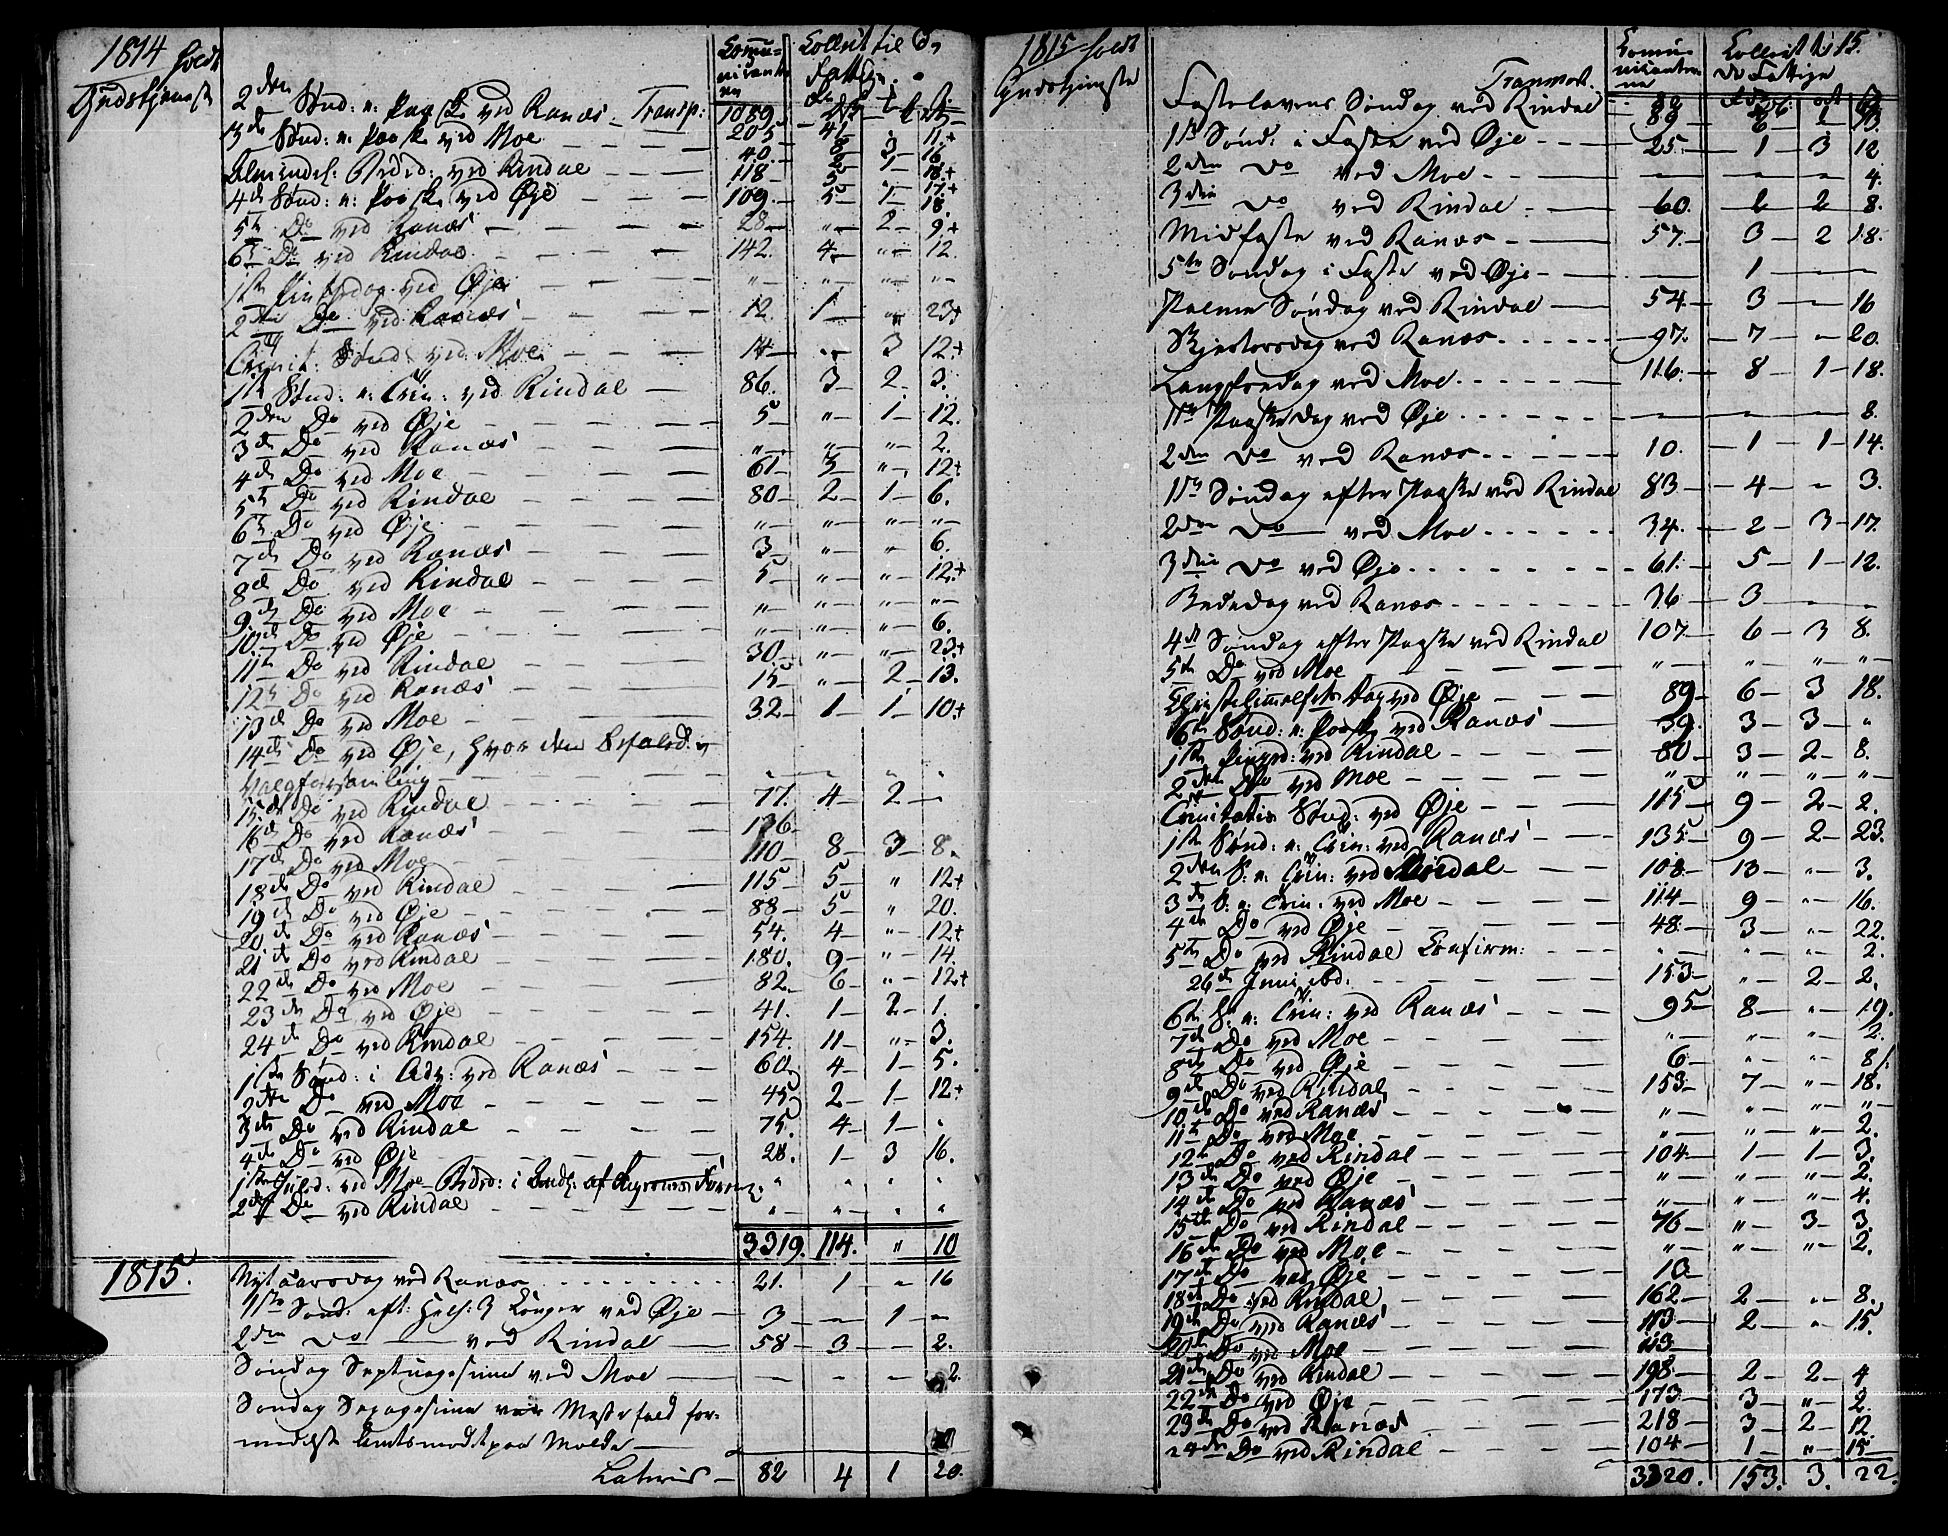 1814 holdt
Gudstjeneste
Comu-
nicanter
ne
Collect til de
Fattige
2den Sønd: e: Paaske ved Ranæs - Transp: 1089
3de Sønd: e: Paaske ved Moe 205
Almindel: Bededag ved Rindal 118 3 1 18+
4de Sønd: e: Paaske ved Øje 109 5 1
5te Do ved Ranæs 28 " 2 9+
6te Do ved Rindal 142. 4 " 12.
1ste Pintsedag ved Øje " " " "
2den Do ved Ranæs 12. 1 " 23+
Trinit: Sønd: ved Moe 14 " 3 12+
1ste Sønd: e: Trin: ved Rindal 86. 3 2 3.
2den Do ved Øje 5 " 1 12.
3de Do ved Ranæs " " " 2.
4de Do ved Moe 61 3 " 12+
5te Do ved Rindal 80 2 1 6.
6te Do ved Øje " " " "
7de Do ved Ranæs 3 " " 6.
8de Do ved Rindal 5 " " 12+
9de Do ved Moe " " " "
10de Do ved Øje " " " 6.
11te Do ved Rindal 30 " " 23+
12te Do ved Ranæs 15 " 2 13.
13de Do ved Moe 32 1 1 10+
14de Do ved Øje, hvor den befaled
Valgforsamling " " " "
15de Do ved Rindal 77. 4 2 "
16de Do ved Ranæs 136
17de Do ved Moe 110 8 3 8.
18de Do ved Rindal 115 5 " 12+
19de Do ved Øje 88 5 " 20.
20de Do ved Ranæs 54. 4 " 12+
21de Do ved Rindal 180. 9 " 14.
22de Do ved Moe 82 6 " 12+
23de Do ved Øje 41. 1 2 1.
24de Do ved Rindal 154. 11 " 3.
1ste Sønd: i Adv: ved Ranæs 60 4 1 5.
2den Do ved Moe 45 2 1 12+
3de Do ved Rindal 75. 4 1 "
4de Do ved Øje 28. 1 3 16.
1ste Juled: ved Moe " " " "
2den Do ved Rindal " " " "
3319. 114. " 10
1815.
Nytaarsdag ved Ranæs 21. 1 " 16
1ste Sond: eft: Hell: 3 Konger ved Øje 3 — 1 —
2den Do ved Rindal 58 3 — 2.
Søndag Septuagesima ved Moe — — — 2
Søndag Sexagesima var Messefald for-
medelst Amtsmodet paa Molde
Lateris 82 4 1 20.
1815 holdt
Gudstjeneste
Comu-
nicanter-
ne
Collect til 15.
de Fattige
Transport.
Fastelavens Søndag ved Rindal 89
1ste Sønd: i Faste ved Øje 25. 1 3 12
2den Do ved Moe — — — 4.
3die Do ved Rindal 60. 2 8.
Midfaste ved Ranæs 57. 3 2 18.
5te Søndag i Faste ved Øje — 1 — —
Palme Søndag ved Rindal 54 3 — 16
Skjertorsdag ved Ranæs 97. 7 " 20.
Langfredag ved Moe 116. 8 1 18.
1ste Paaskedag ved Øje — — — 8.
2den Do ved Ranæs 10. 1 1 14.
1ste Søndag efter Paaske ved Rindal 83 4 " 3.
2den Do ved Moe 34. 2 3 17.
3die Do ved Øje 61. 5 1 12.
Bededag ved Ranæs 36 3 — —
4de Søndag efter Paaske ved Rindal 107 6 3 8.
5te Do ved Moe " " " "
Christi Himmelfarts dag ved Øje 89 6 3 18.
6te Sønd: e: Paaske ved Ranæs 39. 3 3 "
1ste Pinsed: ved Rindal 80 3 2 8.
2den Do ved Moe " " " "
Trinitatis Sønd: ved Øje 115 9 2 2.
1ste Sønd: e: Trin: ved Ranæs 135 9 2 23.
2den S: e: Trin: ved Rindal 108 13 " 3.
3de S: e: Trin: ved Moe 114 9 " 16.
4de Do ved Øje 48. 3 " 22.
5te Do ved Rindal Confirm: " " " 2.
26de Juni ibd: 153 " 2 2.
6te S: e: Trin: ved Ranæs 95 8 " 19.
7de Do ved Moe " " " 2.
8de Do ved Øje 6 " " 8
9de Do ved Rindal 153 7 " 18.
10de Do ved Ranæs " " " "
11te Do ved Moe " " " 2.
12te Do ved Rindal 104 1 1 3.
13de Do ved Øje " " " 2.
14de Do ved Ranæs " " " 4.
15de Do ved Rindal 76 " 3 3.
16de Do ved Moe " " " 2.
17de Do ved Øje 10
18de Do ved Rindal 162 2 " 8.
19de Do ved Ranæs 113 2 " 15.
20de Do ved Moe 113
21de Do ved Rindal 198 2 2 4
22de Do ved Øje 173 3 " 2.
23de Do ved Ranæs 218 3 2 12.
24de Do ved Rindal 104 1 " 15
3320. 153. 3. 22.